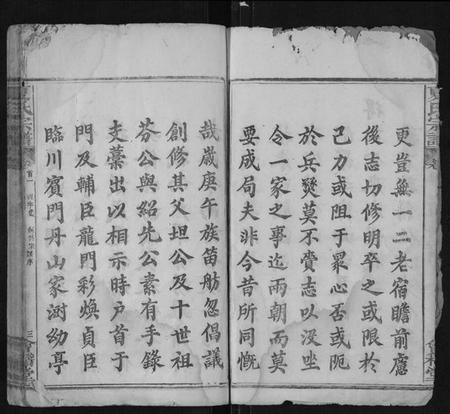 更豈無一二老宿瞻前慮
後志切修明卒之或限於
己力或阻于眾心否或阨
於兵燹莫不賫志以沒坐
令一家之事迄兩朝而莫
要成局夫非今昔所同慨
哉歲庚午族笛舫忽倡議
創修其父坦公及十世祖
芬公與紹先公素有手錄
支藁出以相示時戶首于
門及輔臣龍門彩煥貞臣
臨川賓門丹山家澍幼亭